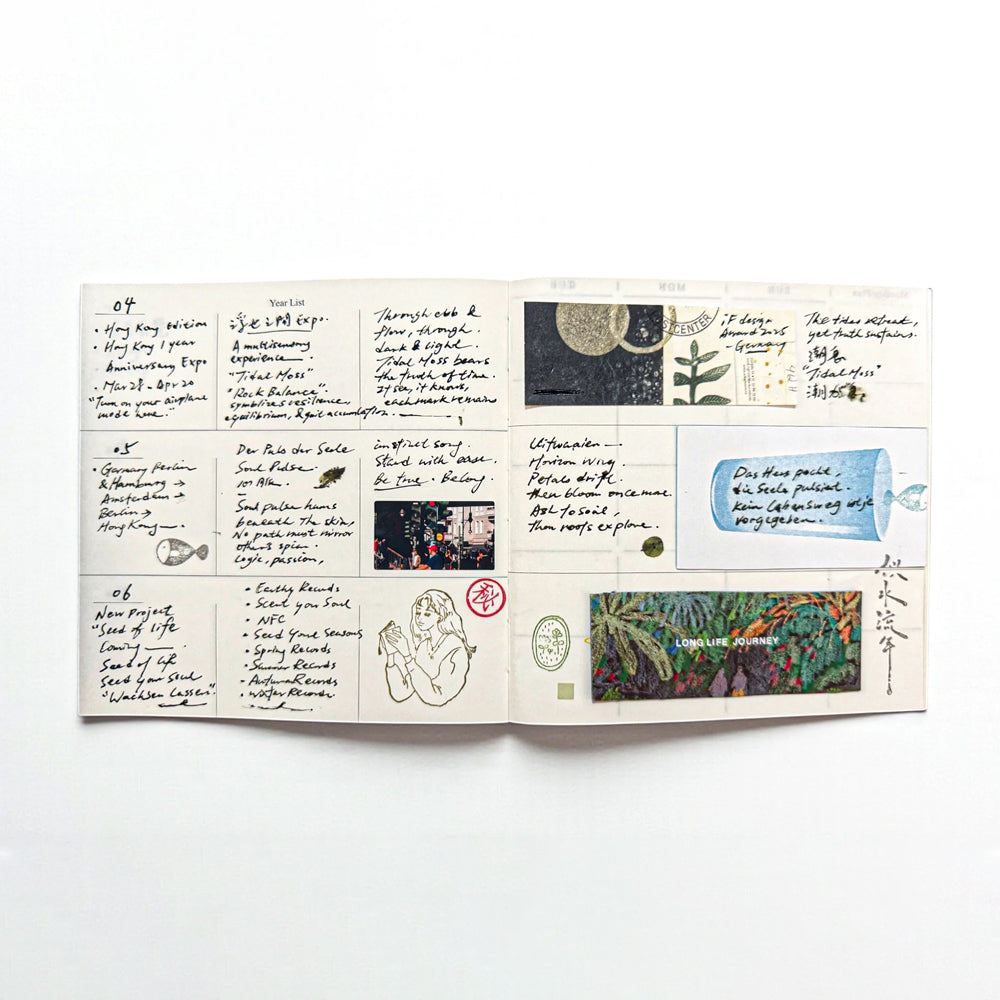 Year List
04
• Hong Kong Edition
• Hong Kong 1 year
Anniversary Expo
• Mar 28 - Apr 20
"Turn on your airplane
mode here."
Expo.
A multisensory
experience
"Tidal Moss"
"Rock Balance".
symbolizes resilience,
equilibrium, & quiet accumulation.
Through ebb &
flow, through
dark & light.
Tidal Moss bears
the truth of time.
it sees, it knows,
each mark remains
05
• Germany Berlin
& Hamburg →
Amsterdam →
Berlin →
Hong Kong
Der Puls der Seele
Soul Pulse.
Soul pulse hums
beneath the skin,
No path must mirror
other's spin.
Logic, passion,
instinct song.
Stand with ease.
Be true. Belong.
06
New Project
"Seed of life
Coming
Seed of life
Seed your Soul
"Wachsen Lassen".
• Earthy Records
• Scent your Soul
• NFC
• Seed your Seasons
• Spring Records
• Summer Records
• Autumn Records
• Winter Records
POSTCENTER
iF design
Award 2025
- Germany
The tides retreat,
yet truth sustains.
"Tidal Moss"
Horizon Wing.
Petals drift.
then bloom once more.
Ash to soil,
then roots explore.
Das Herz pocht
die Seele pulsiert.
Kein Lebensweg
vorgegeben.
LONG LIFE JOURNEY
似水流年